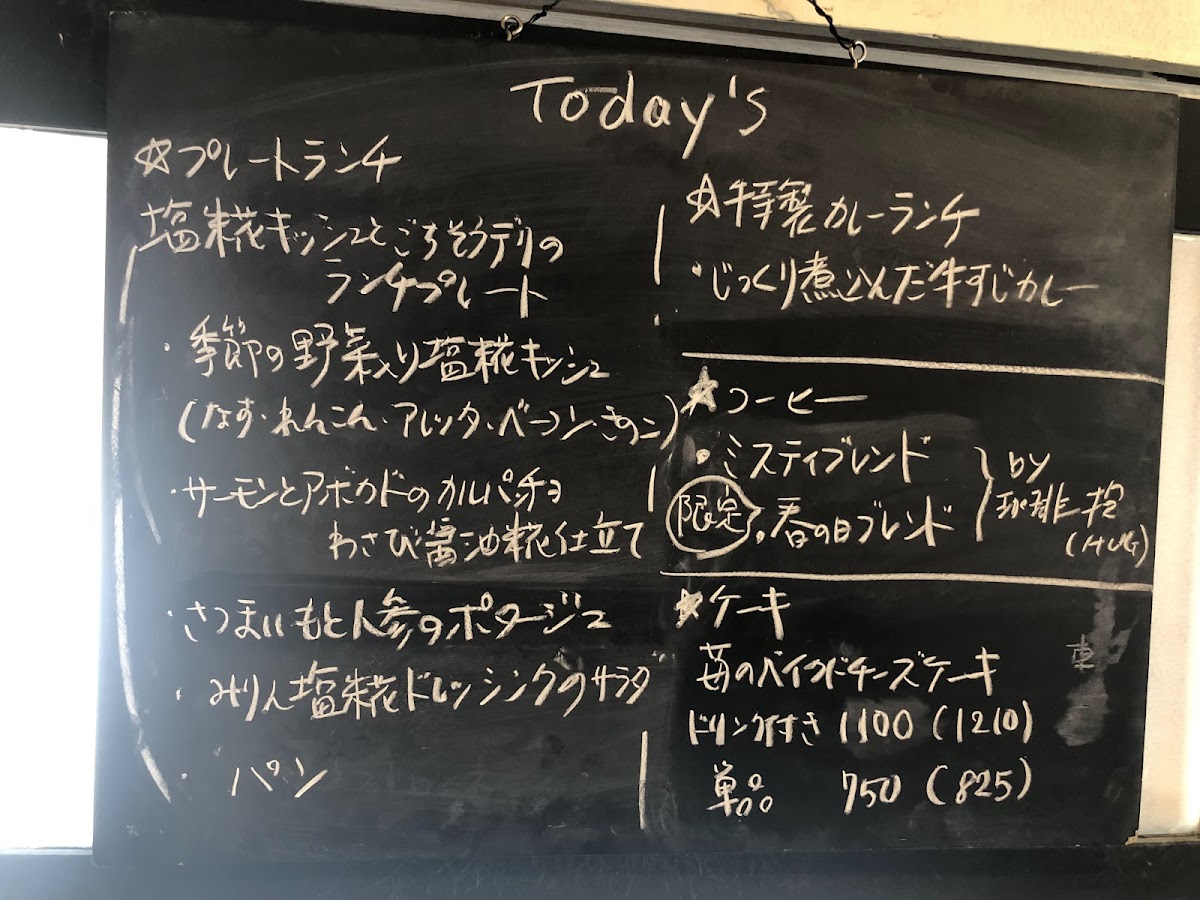 Today's
☆プレートランチ
塩糀キッシュとごちそうデリの
ランチプレート
・季節の野菜入り塩糀キッシュ
(なす・れんこん・アレッタ・ベーコン・きのこ)
・サーモンとアボカドのカルパッチョ
わさび醤油糀仕立て
・さつまいもと人参のポタージュ
・みりん塩糀ドレッシングのサラダ
・パン
☆特製カレーランチ
・じっくり煮込んだ牛すじカレー
★コーヒー
・ミスティブレンド
限定・春の日ブレンド
by
珈琲抱
(HUG)
★ケーキ
苺のベイクドチーズケーキ
ドリンク付き 1100 (1210)
単品 750 (825)